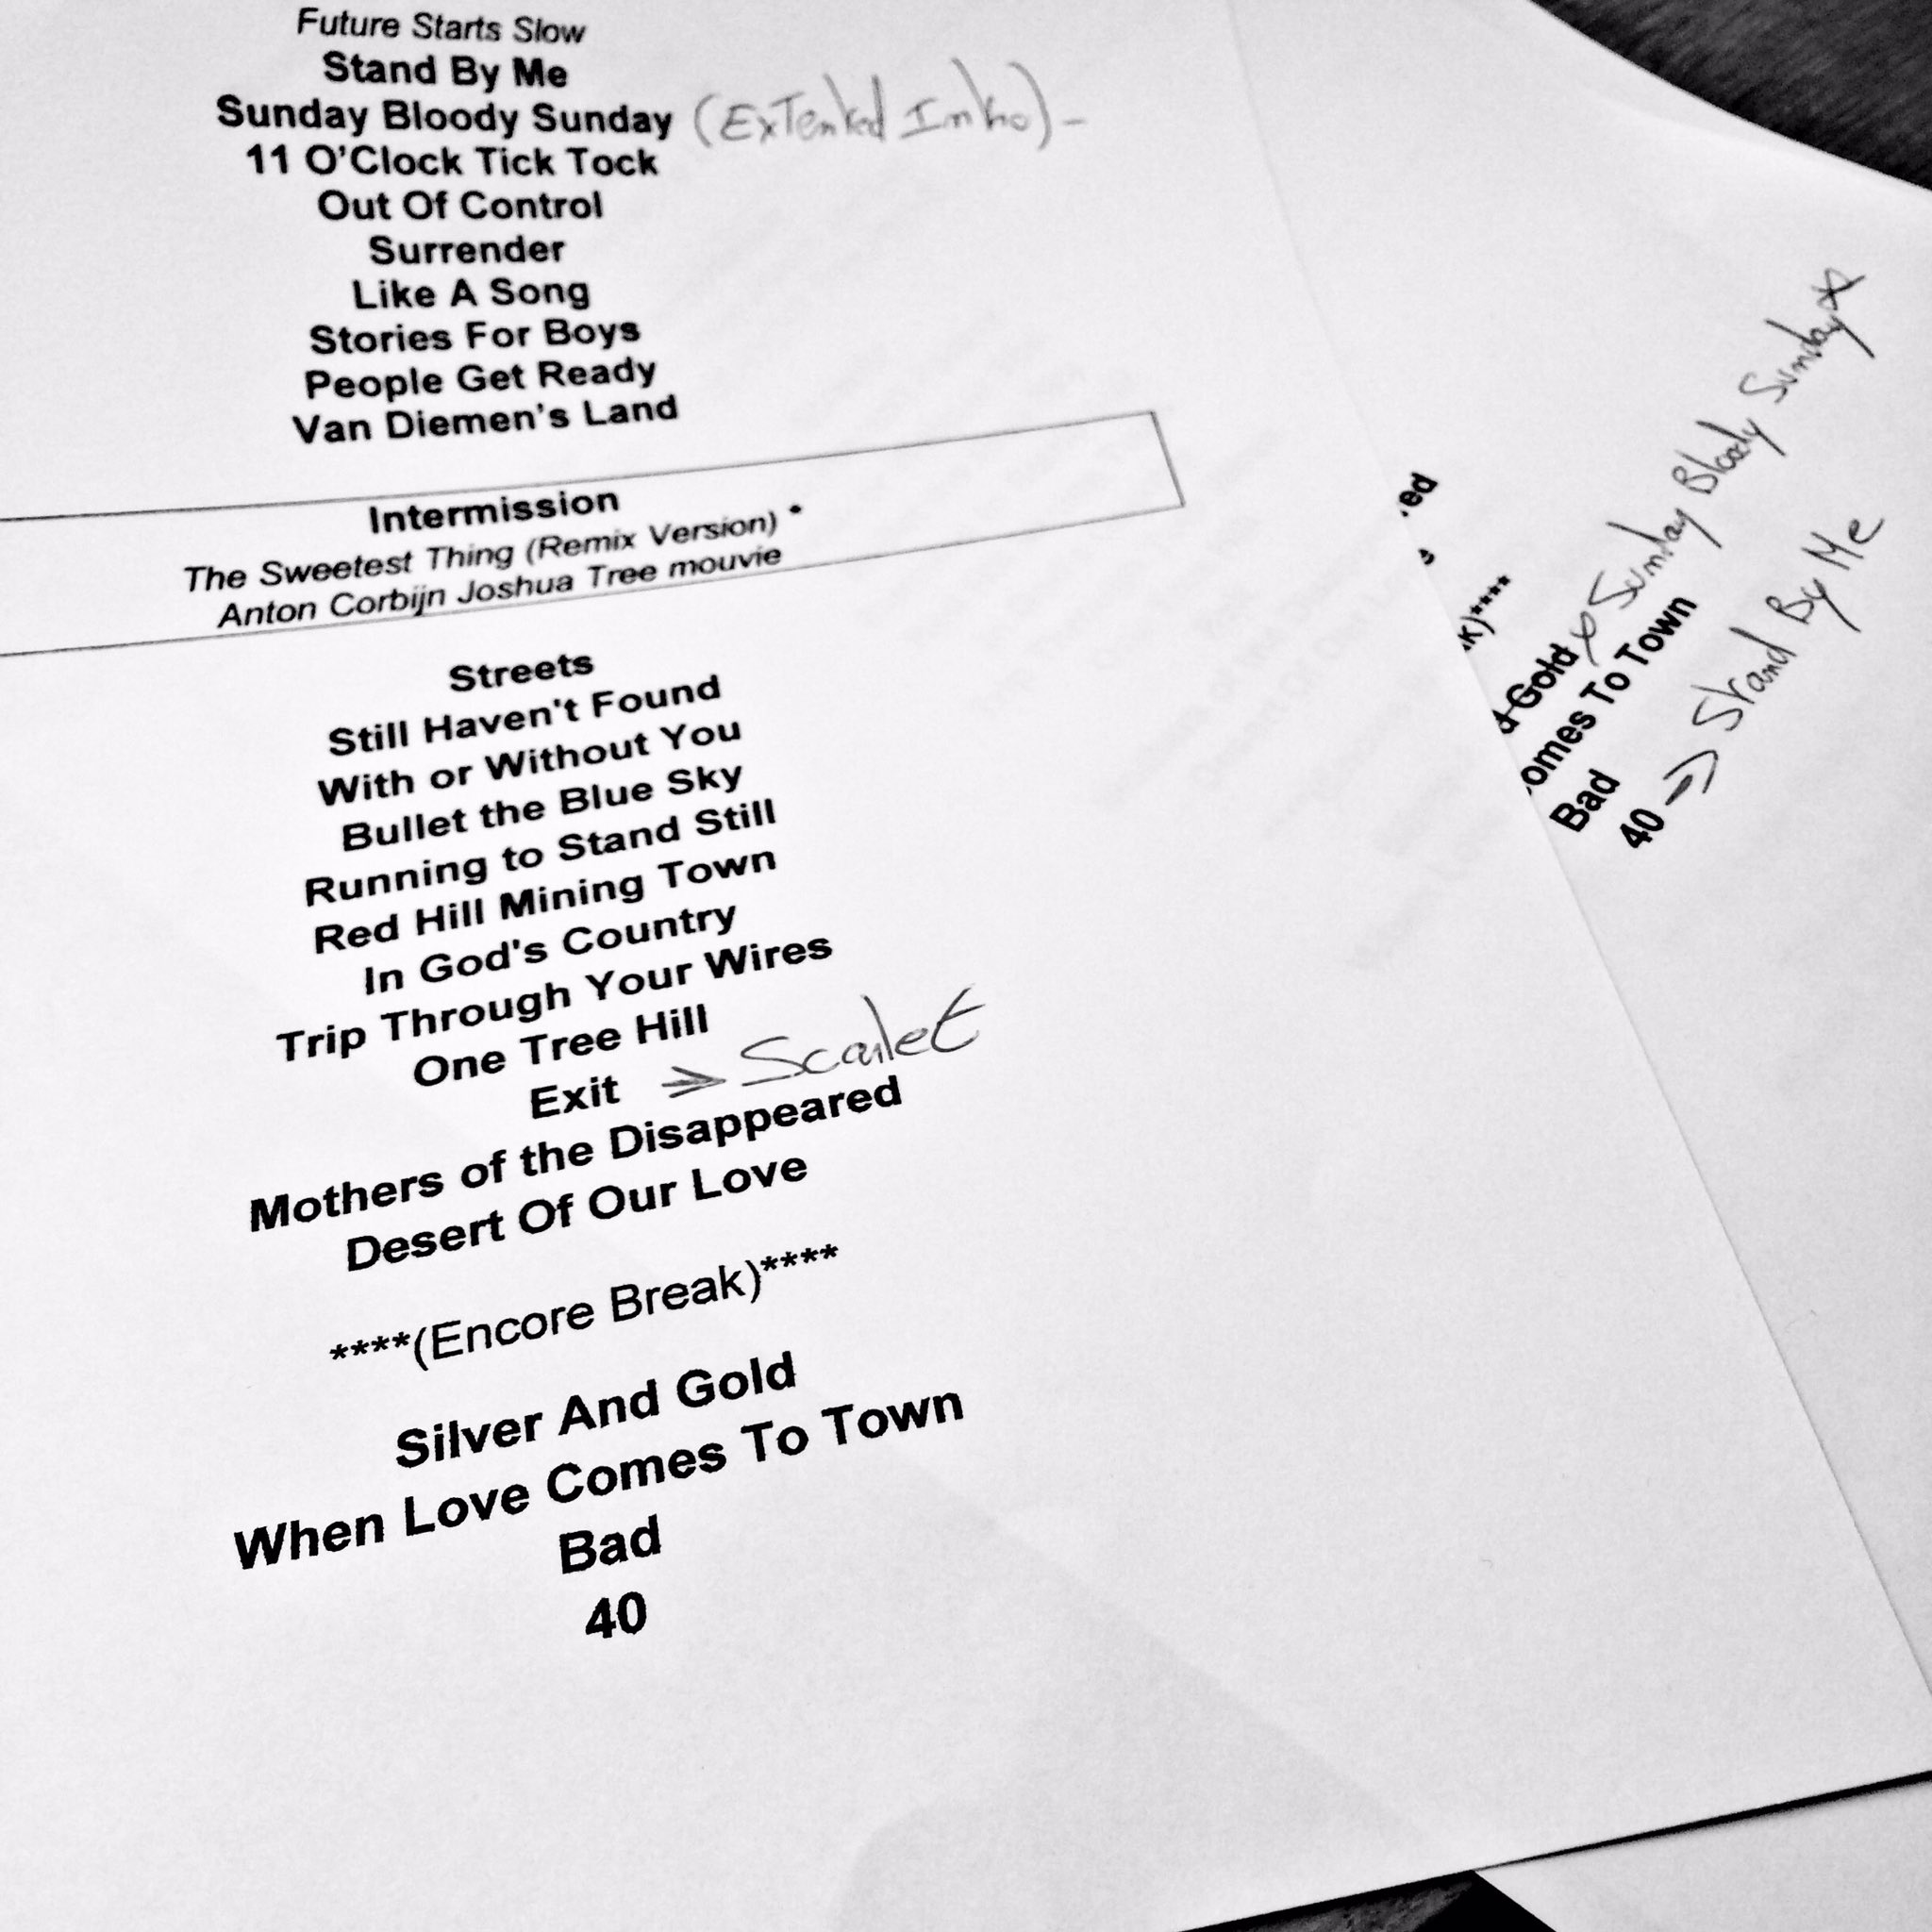 Future Starts Slow
Stand By Me
Sunday Bloody Sunday (Extended Intro) -
11 O'Clock Tick Tock
Out Of Control
Surrender
Like A Song
Stories For Boys
People Get Ready
Van Diemen's Land
Intermission
The Sweetest Thing (Remix Version) *
Anton Corbijn Joshua Tree mouvie
Streets
Still Haven't Found
With or Without You
Bullet the Blue Sky
Running to Stand Still
Red Hill Mining Town
In God's Country
Trip Through Your Wires
One Tree Hill
Exit => Scarlet
Mothers of the Disappeared
Desert Of Our Love
****(Encore Break)****
Silver And Gold
When Love Comes To Town
Bad
40
ed
s
k)****
d Gold x Sunday Bloody Sunday *
omes To Town
Bad
40 => Strand By Me